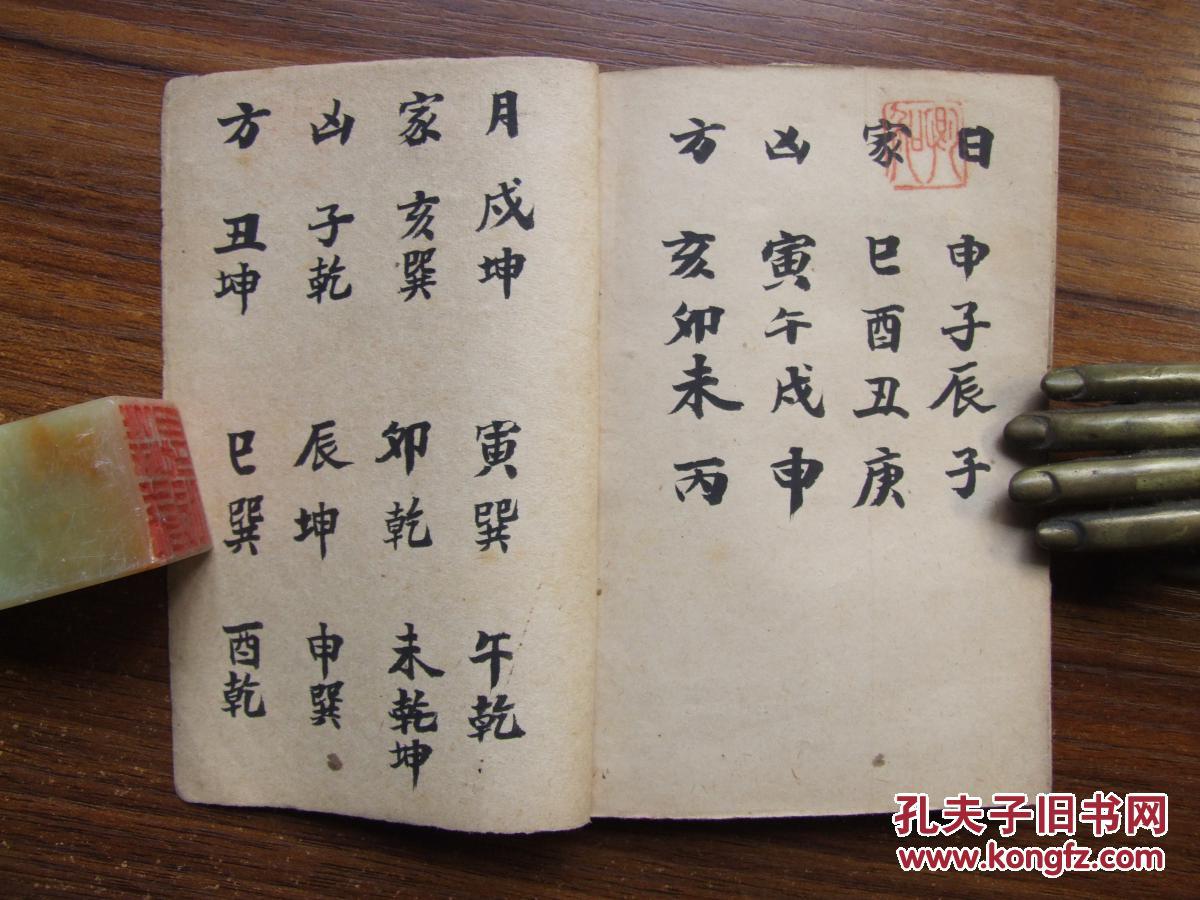 日申子辰子
家巳酉丑庚
凶寅午戌申
方亥卯未丙
月戌坤寅巽午乾
家亥巽卯乾未乾坤
凶子乾辰坤申巽
方丑坤巳巽酉乾
孔夫子旧书网
www.kongfz.com